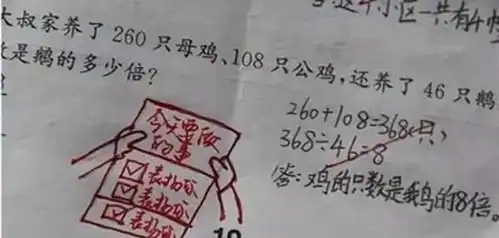 一共有4
大叔家养了260只母鸡、108只公鸡,还养了46只鹅
是鹅的多少倍?
260+108=368(只)
368÷46=8
答:鸡的只数是鹅的8倍。
今天要做
的事
表扬你
表扬你
表扬你